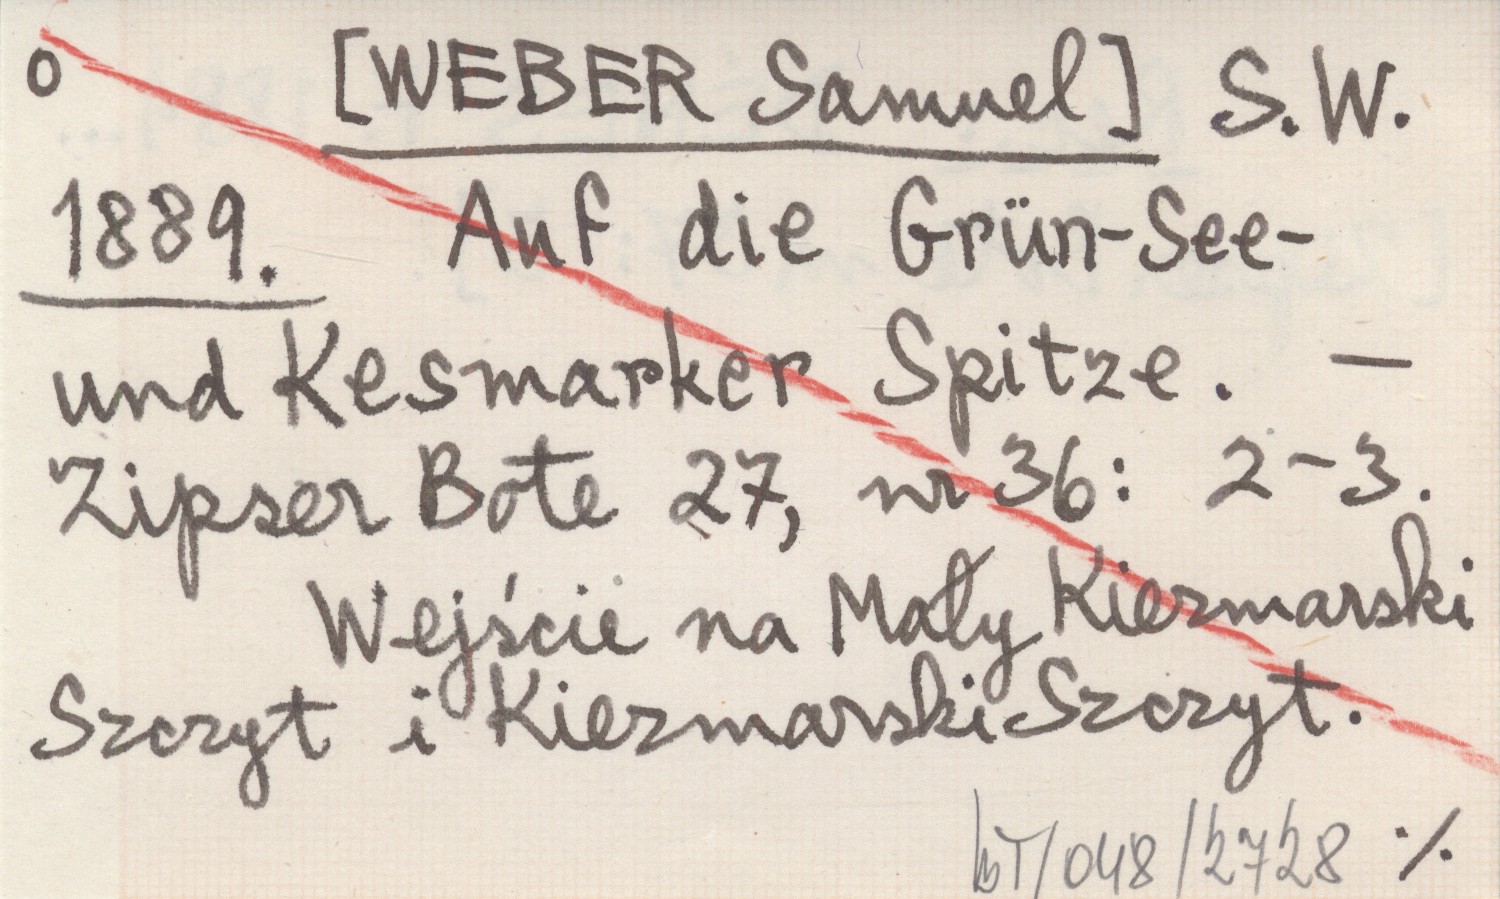 o [WEBER Samuel] S.W.
1889. Auf die Grün-See-
und Kesmarker Spitze. —
Zipser Bote 27, nr 36: 2-3.
Wejście na Mały Kiezmarski
Szczyt i Kiezmarski Szczyt.
bT/048/2728 ./.